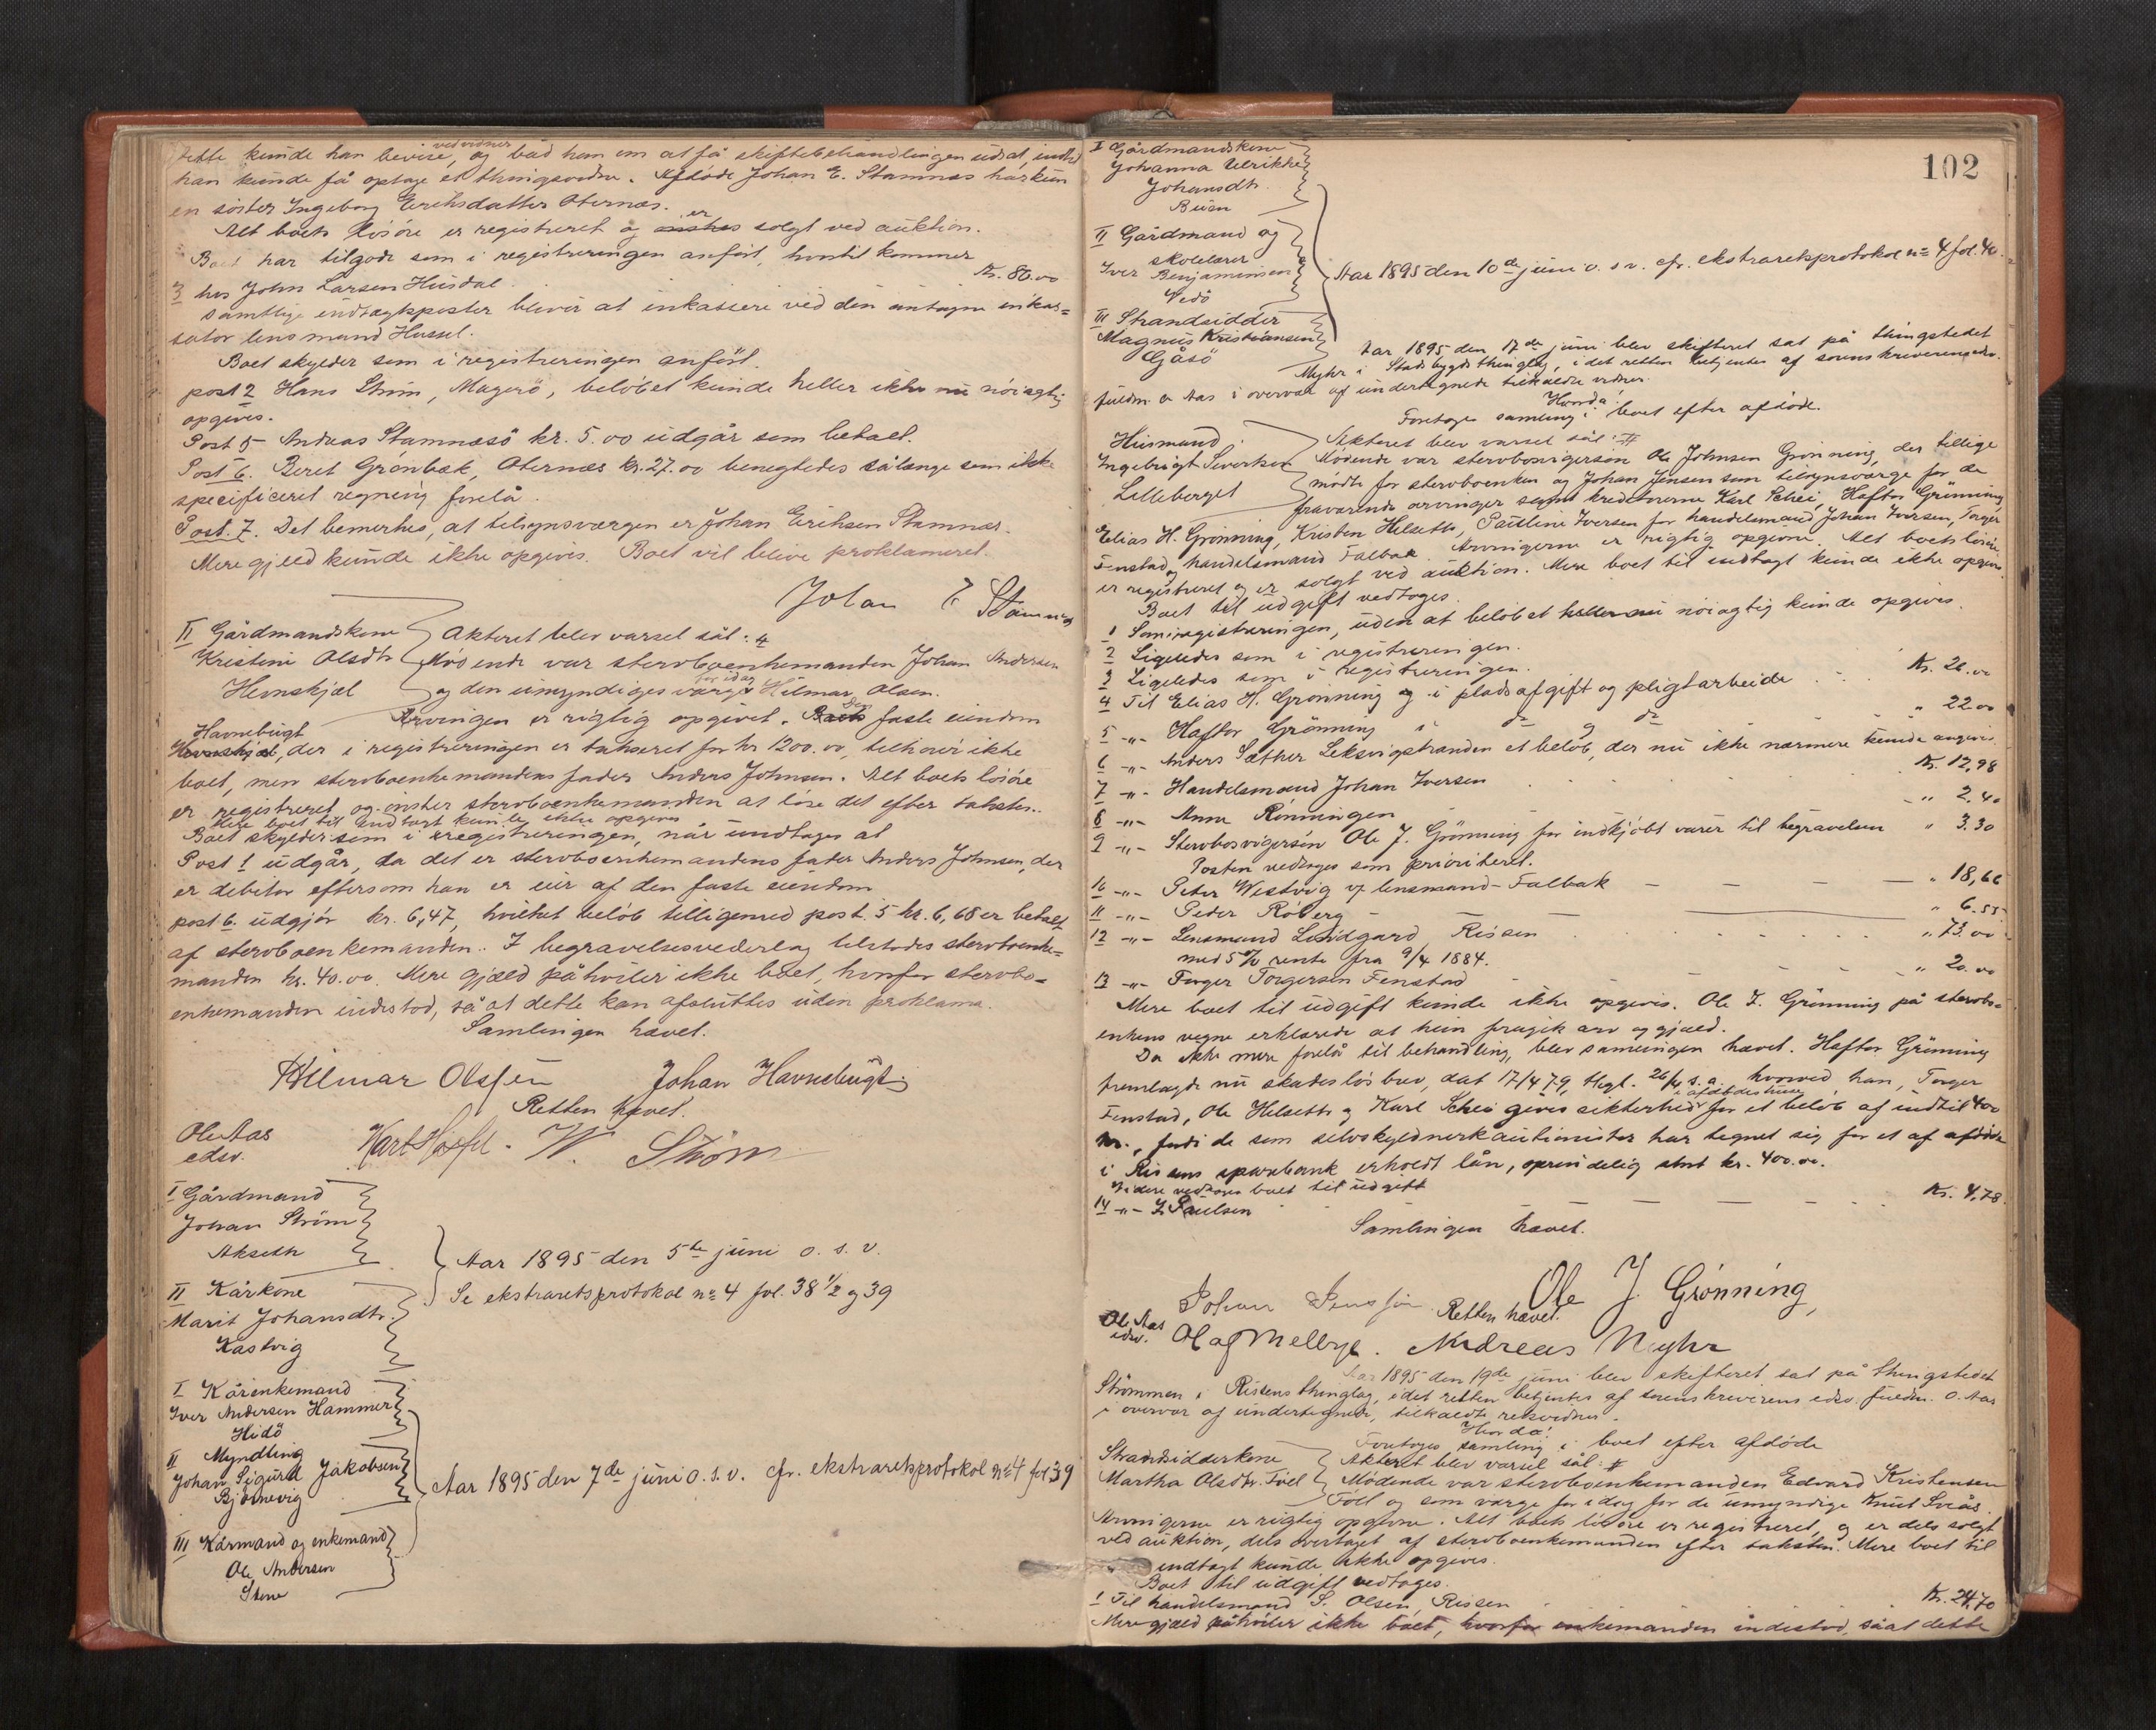 dette kunde han bevise, ved vidner og bad han om at få skiftebehandlingen udsat, indtil
han kunde få optage et thingsvidne. Afdøde Johan E. Stamnæs har kun
en søster Ingeborg Eriksdatter Oternæs.
Alt boets løsøre er registreret og er solgt ved auktion.
Boet har tilgode som i registreringen anført, hvortil kommer
3 hos John Larsen Husdal. Kr. 80.00
Samtlige indtægtsposter bliver at inkassere ved den antagne inkas=
sator lensmand Hassel.
Boet skylder som i registreringen anført.
post 2 Hans Strøm, Magerö, beløbet kunde heller ikke nu nöiagtig
opgives.
Post 5 Andreas Stamnæsö kr. 5.00 udgår som betalt.
Post 6. Beret Grönbæk, Oternæs kr. 27.00 benegtedes sålænge som ikke
specificeret regning forelå.
Post. 7. Det bemerkes, at tilsynsværgen er Johan Eriksen Stamnæs.
Mere gjeld kunde ikke opgives. Boet vil blive proklameret.
Johan E Stamnes
II Gårdmandskone
Kristine Olsdtr
Hernskjæl
Akteret blev varsel sål: #
Mødende var stervboenkemanden Johan Andersen
og den umyndiges værge for idag Hilmar Olsen.
Arvingen er rigtig opgivet. Den faste eiendom
Havnebugt, der i registreringen er takseret for kr 1200.00, tilhører ikke
boet, men stervboenkemandens fader Anders Johnsen. Alt boets løsöre
er registreret og önsker stervboenkemanden at löse det efter taksten.
Mere boet til indtægt kunde ikke opgives
Boet skylder som i registreringen, når undtages at
Post 1 udgår, da det er stervboenkemandens fader Anders Johnsen, der
er debitor eftersom han er eier af den faste eiendom
post 6. udgjör kr. 6,47, hvilket belöb tilligemed post. 5 kr. 6,68 er betalt
af stervboenkemanden. I begravelsesvederlag tilstodes stervboenke=
manden kr. 40.00. Mere gjæld påhviler ikke boet, hvorfor stervbo=
enkemanden indestod, så at dette kan afsluttes uden proklama.
Samlingen hævet.
Hilmar Olsen Johan Havnebugt
Retten hævet.
Ole Aas
edsv.
W. Strøm
I Gårdmand
Johan Ström
Akseth
II Kårkone
Marit Johansdtr.
Kastvig
Aar 1895 den 5te juni o. s. v.
Se ekstraretsprotokol no 4 fol. 38 1/2 og 39
I Kårenkemand
Iver Andersen Hammer
Hidö
II Myndling
Johan Sigurd Jakobsen
Bjørnevig
III Kårmand og enkemand
Ole Andersen
Stene
Aar 1895 den 7de juni o. s. v. cfr. ekstraretsprotokol no 4 fol 39
102
I Gårdmandskone
Johanna Ulrikke
Johansdtr.
Buån
II Gårdmand og
skolelærer
Iver Benjaminsen
Vedö
III Strandsidder
Magnus Kristiansen
Gåsö
Aar 1895 den 10de juni o. s v. cfr. ekstraretsprotokol no 4 fol. 40.
Aar 1895 den 17de juni blev skifteret sat på thingstedet
Myhr i Stadsbygds thinglag, i det retten betjentes af sorenskriverens edsv.
fuldm. O Aas i overvær af undertegnede tilkaldte vidner.
Hvorda:
Foretoges samling i boet efter afdöde.
Husmand
Ingebrigt Sivertsen
Lilleberget
Akteret blev varsel sål: #
Mødende var stervbosvigersön Ole Johnsen Grönning, der tillige
mödte for stervboenken og Johan Jensen som tilsynsværge for de
fraværende arvinger samt kreditorerne Karl Schei, Haftor Grönning
Elias H. Grønning, Kristen Helsetth, Pauline Iversen for handelsmand Johan Iversen, Torger
Fenstad og handelsmand Falbak. Arvingerne er rigtig opgivne. Alt boets løsöre
er registreret og er solgt ved auktion. Mere boet til indtægt kunde ikke opgives.
Boet til udgift vedtoges.
1 Som i registreringen, uden at beløbet heller nu nöiagtig kunde opgives.
2 Ligeledes som i registreringen.
3 Ligeledes som i registreringen.
4 Til Elias H. Grønning i pladsafgift og pligtarbeide Kr. 26.00
5 -"- Haftor Grönning i do og do " 22.00
6 -"- Anders Sæther Leksvigstranden et beløb, der nu ikke nærmere kunde angives.
7 -"- Handelsmand Johan Iversen Kr. 12,98
8 -"- Anne Rönningen " 2.40
9 -"- Stervbosvigersön Ole J. Grönning for indkjøbt varer til begravelsen " 3.30
Posten vedtoges som prioriteret.
10 -"- Peter Westvig v/ lensmand Falbak " 18,66
11 -"- Peder Röberg " 6.55
12 -"- Lensmand Lindgard Rissen " 73.00
med 5 % rente fra 9/4 1884.
13 -"- Torger Torgersen Fenstad " 20.00
Mere boet til udgift kunde ikke opgives. Ole J. Grönning på stervbo=
enkens vegne erklærede at hun fragik arv og gjæld.
Da ikke mere forelå til behandling, blev samlingen hævet. Haftor Grönning
fremlagde nu skadeslösbrev, dat 17/4 79, thgl. 26/4 s. a. hvorved han, Torger
Fenstad, Ole Helsetth og Karl Schei gives sikkerhed i afdödes hus for et belöb af indtil 400
kr., fordi de som selvskyldnerkautionister har tegnet sig for et af afdöde
i Rissens sparebank erholdt lån, oprindelig stort kr. 400.00.
Videre vedtoges boet til udgift
14 -"- Paulsen Kr. 4,78.
Samlingen hævet.
Johan Jensen Ole J. Grönning,
Retten hævet.
Ole Aas
edsv. Olaf Mellbye. Andreas Myhr
Aar 1895 den 19de juni blev skifteret sat på thingstedet
Strömmen i Rissens thinglag, idet retten betjentes af sorenskriverens edsv. fuldm. O. Aas
i overvær af undertegnede, tilkaldte retsvidner.
Hvorda:
Foretoges samling i boet efter afdöde
Strandsidderkone
Martha Olsdtr. Föll
Akteret blev varsel sål: #
Mødende var stervboenkemanden Edvard Kristensen
Föll og som værge for idag for de umyndige Knut Sveås.
Arvingerne er rigtig opgivne. Alt boets lösöre er registreret, og er dels solgt
ved auktion, dels overtaget af stervboenkemanden efter taksten. Mere boet til
indtægt kunde ikke opgives.
Boet til udgift vedtoges.
1 Til handelsmand S. Olsen, Rissen Kr. 24.70
Mere gjæld påhviler ikke boet, hvorfor enkemanden indestod, såat dette